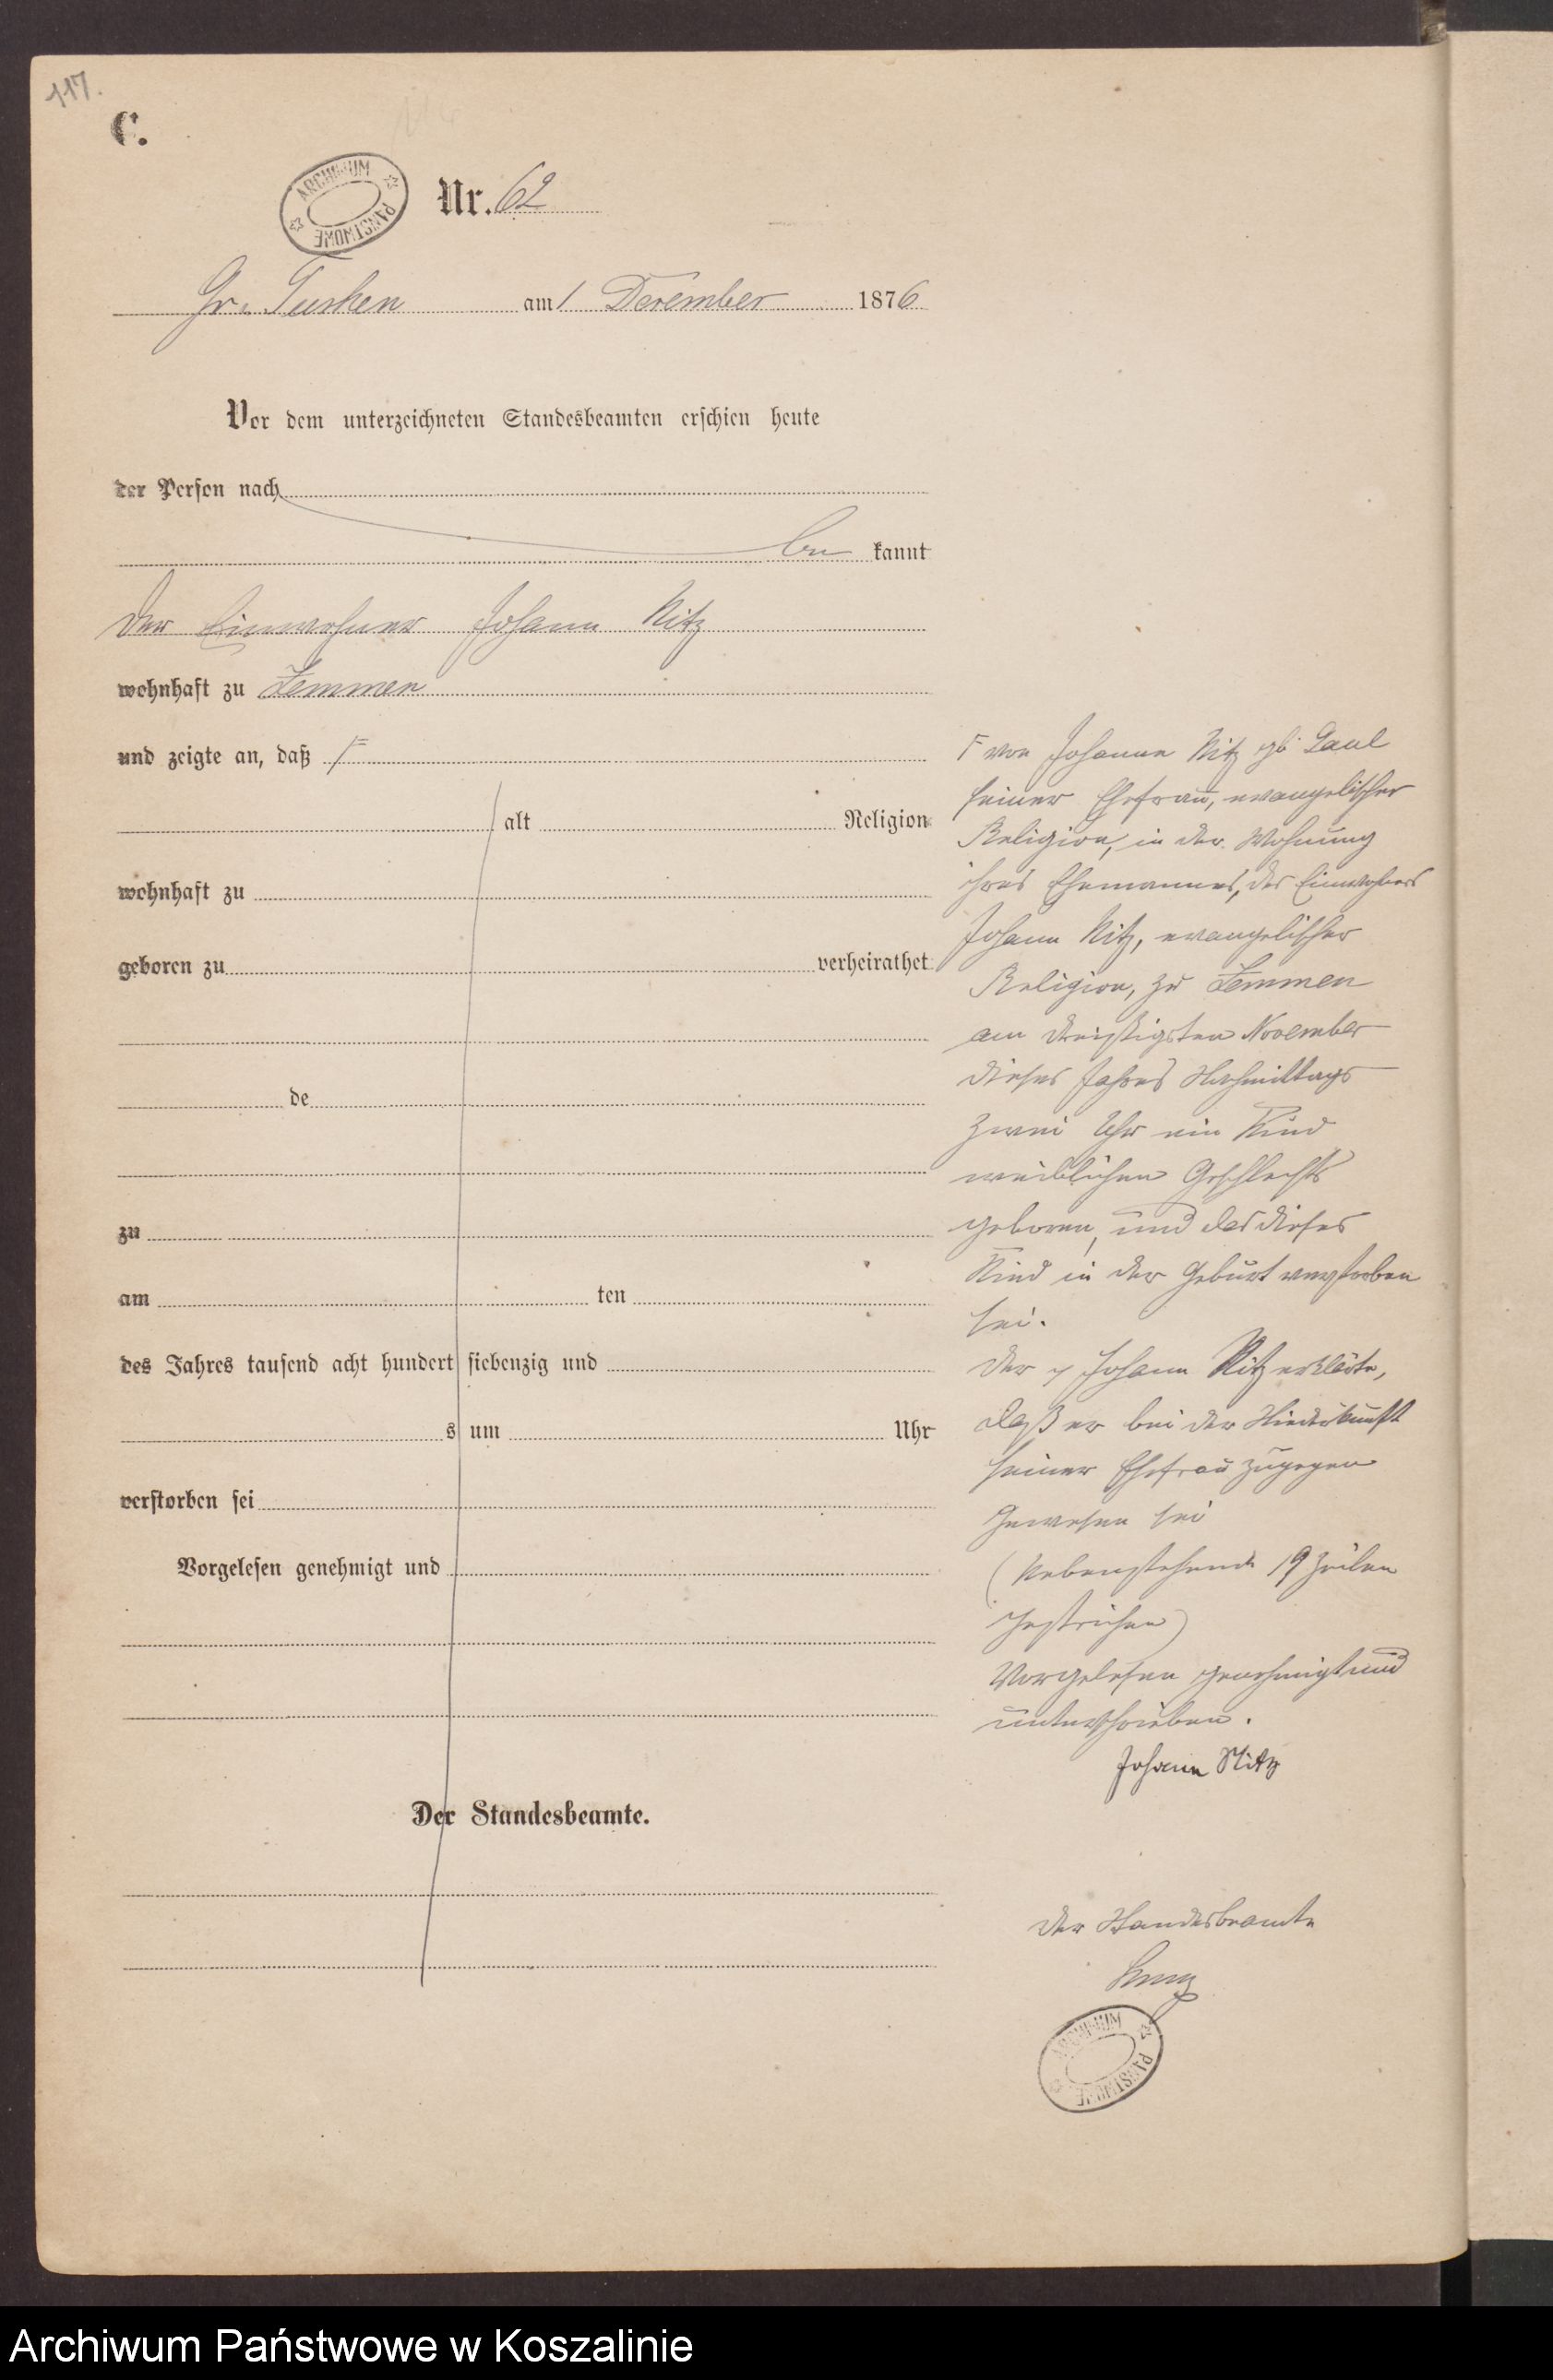 117.
C.
ARCHIWUM PAŃSTWOWE
Nr. 62
Gr. Tuchen am 1 December 1876
Vor dem unterzeichneten Standesbeamten erschien heute
der Person nach
be kannt
der Einwohner Johann Nitz
wohnhaft zu Zemmen
und zeigte an, daß F
alt Religion
wohnhaft zu
geboren zu verheirathet
de
zu
am ten
des Jahres tausend acht hundert siebenzig und
s um Uhr
verstorben sei
Vorgelesen genehmigt und
Der Standesbeamte.
F von Johanna Nitz gb. Paul
seiner Ehefrau, evangelischer
Religion, in der Wohnung
ihres Ehemannes, des Einwohners
Johann Nitz, evangelischer
Religion, zu Zemmen
am dreißigsten November
dieses Jahres Nachmittags
zwei Uhr ein Kind
weiblichen Geschlechts
geboren, und das dieses
Kind in der Geburt verstorben
sei.
Der Johann Nitz erklärte,
daß er bei der Niederkunft
seiner Ehefrau zugegen
gewesen sei
(Nebenstehende 19 Zeilen
gestrichen)
Vorgelesen genehmigt und
unterschrieben.
Johann Nitz
Der Standesbeamte
ARCHIWUM PAŃSTWOWE
Archiwum Państwowe w Koszalinie